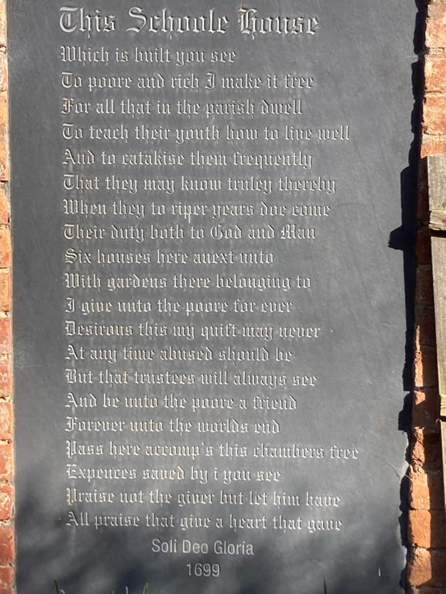 This Schoole House
Which is built you see
To poore and rich I make it free
For all that in the parish dwell
To teach their youth how to live well
And to catakise them frequently
That they may know truley thereby
When they to riper years doe come
Their duty both to God and Man
Six houses here anext unto
With gardens there belonging to
I give unto the poore for ever
Desirous this my quift may never
At any time abused should be
But that trustees will always see
And be unto the poore a friend
Forever unto the worlds end
Pass here accomp's this chambers free
Expences saved by i you see
Praise not the giver but let him have
All praise that give a heart that gave
Soli Deo Gloria
1699